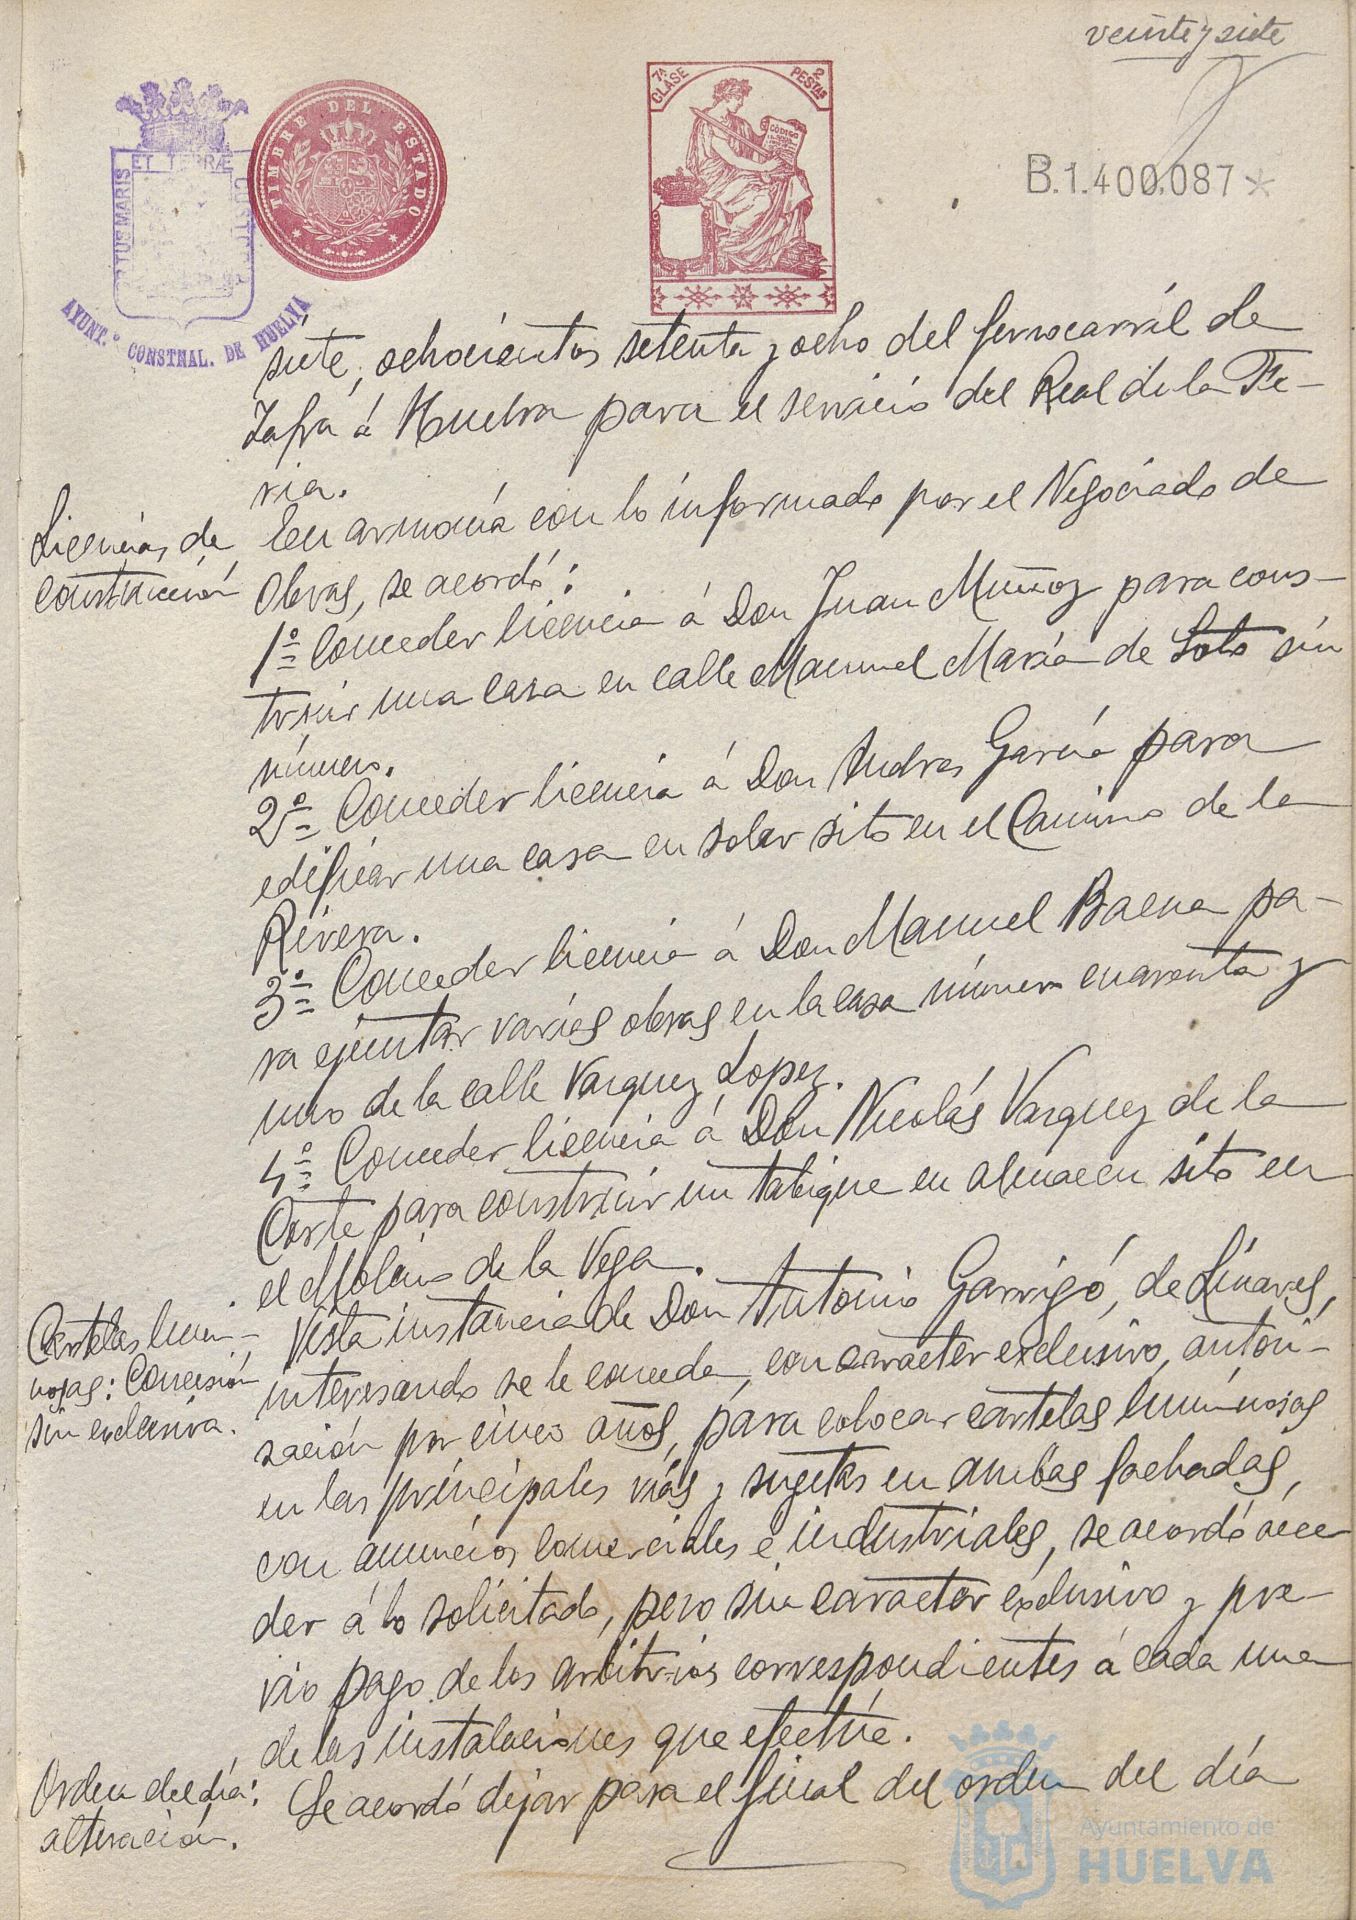 veinte y siete
7ª CLASE
2 PESTAS
CÓDIGO
TIMBRE DEL ESTADO
PORTUS MARIS ET TERRÆ CUSTODIA
AYUNT.º CONSTNAL. DE HUELVA
B.1.400.087*
siete, ochocientos setenta y ocho del ferrocarril de
Zafra á Huelva para el servicio del Real de la Fe-
ria.
Licencias de
construcción
En armonía con lo informado por el Negociado de
Obras, se acordó:
1º= Conceder licencia á Don Juan Muñoz para cons-
truir una casa en calle Manuel María de Soto sin
número.
2º= Conceder licencia á Don Andres García para
edificar una casa en solar sito en el Camino de la
Rivera.
3º= Conceder licencia á Don Manuel Baena pa-
ra ejecutar varias obras en la casa número cuarenta y
uno de la calle Vazquez Lopez.
4º= Conceder licencia á Don Nicolás Vazquez de la
Corte para construir un tabique en almacen sito en
el Molino de la Vega.
Cartelas lumi-
nosas: Concesión
sin exclusiva.
Vista instancia de Don Antonio Garrigó, de Linares,
interesando se le conceda, con caracter exclusivo, autori-
zación por cinco años, para colocar cartelas luminosas
en las principales vías y sujetas en ambas fachadas,
con anuncios comerciales e industriales, se acordó acce
der á lo solicitado, pero sin caracter exclusivo y pre-
vio pago de los arbitrios correspondientes á cada una
de las instalaciones que efectúe.
Orden del día:
alteración.
Se acordó dejar para el final del orden del día
Ayuntamiento de
HUELVA